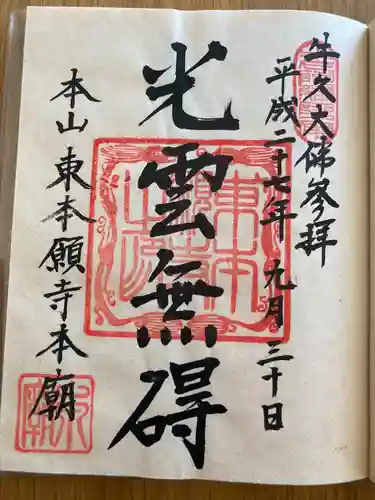 牛久大佛参拝
平成二十七年 九月三十日
光雲無碍
本山東本願寺本廟